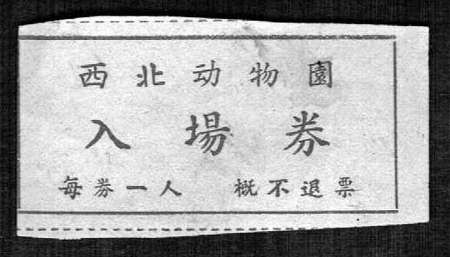 西北动物園
入場券
每券一人 概不退票